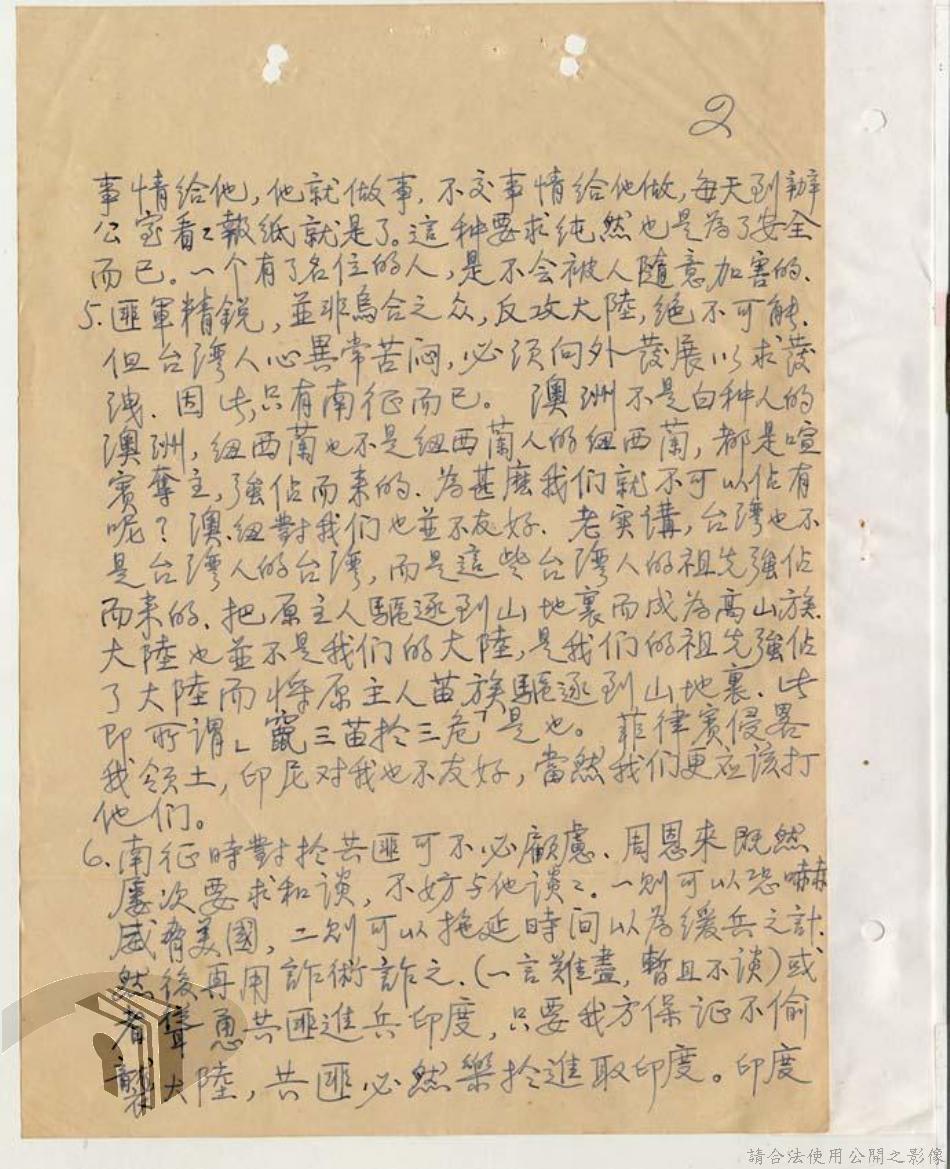 2
事情給他，他就做事．不交事情給他做，每天到辦
公室看々報紙就是了。這种要求纯然也是為了安全
而已。一个有了名位的人，是不会被人隨意加害的．
5. 匪軍精銳，並非烏合之众，反攻大陸，绝不可能．
但台灣人心異常苦闷，必须向外發展以求發
洩．因此，只有南征而已。澳洲不是白种人的
澳洲，纽西蘭也不是纽西蘭人的纽西蘭，都是喧
賓奪主，強佔而来的．為甚麼我们就不可以佔有
呢？澳．纽對我们也並不友好．老实講，台灣也不
是台灣人的台灣，而是這些台灣人的祖先強佔
而来的．把原主人驅逐到山地裏而成為高山族．
大陸也並不是我们的大陸，是我们的祖先強佔
了大陸而将原主人苗族驅逐到山地裏．此
即所谓」竄三苗於三危「是也。菲律賓侵畧
我领土，印尼对我也不友好，當然我们更应该打
他们。
6. 南征時對於共匪可不必顧慮．周恩來既然
屡次要求和谈，不妨与他谈々。一则可以恐嚇
威脅美國，二则可以拖延時间以為缓兵之計．
然後再用詐術詐之．（一言難盡，暫且不谈）或
者慫恿共匪進兵印度，只要我方保证不偷
襲大陸，共匪必然樂於進取印度。印度
請合法使用公開之影像